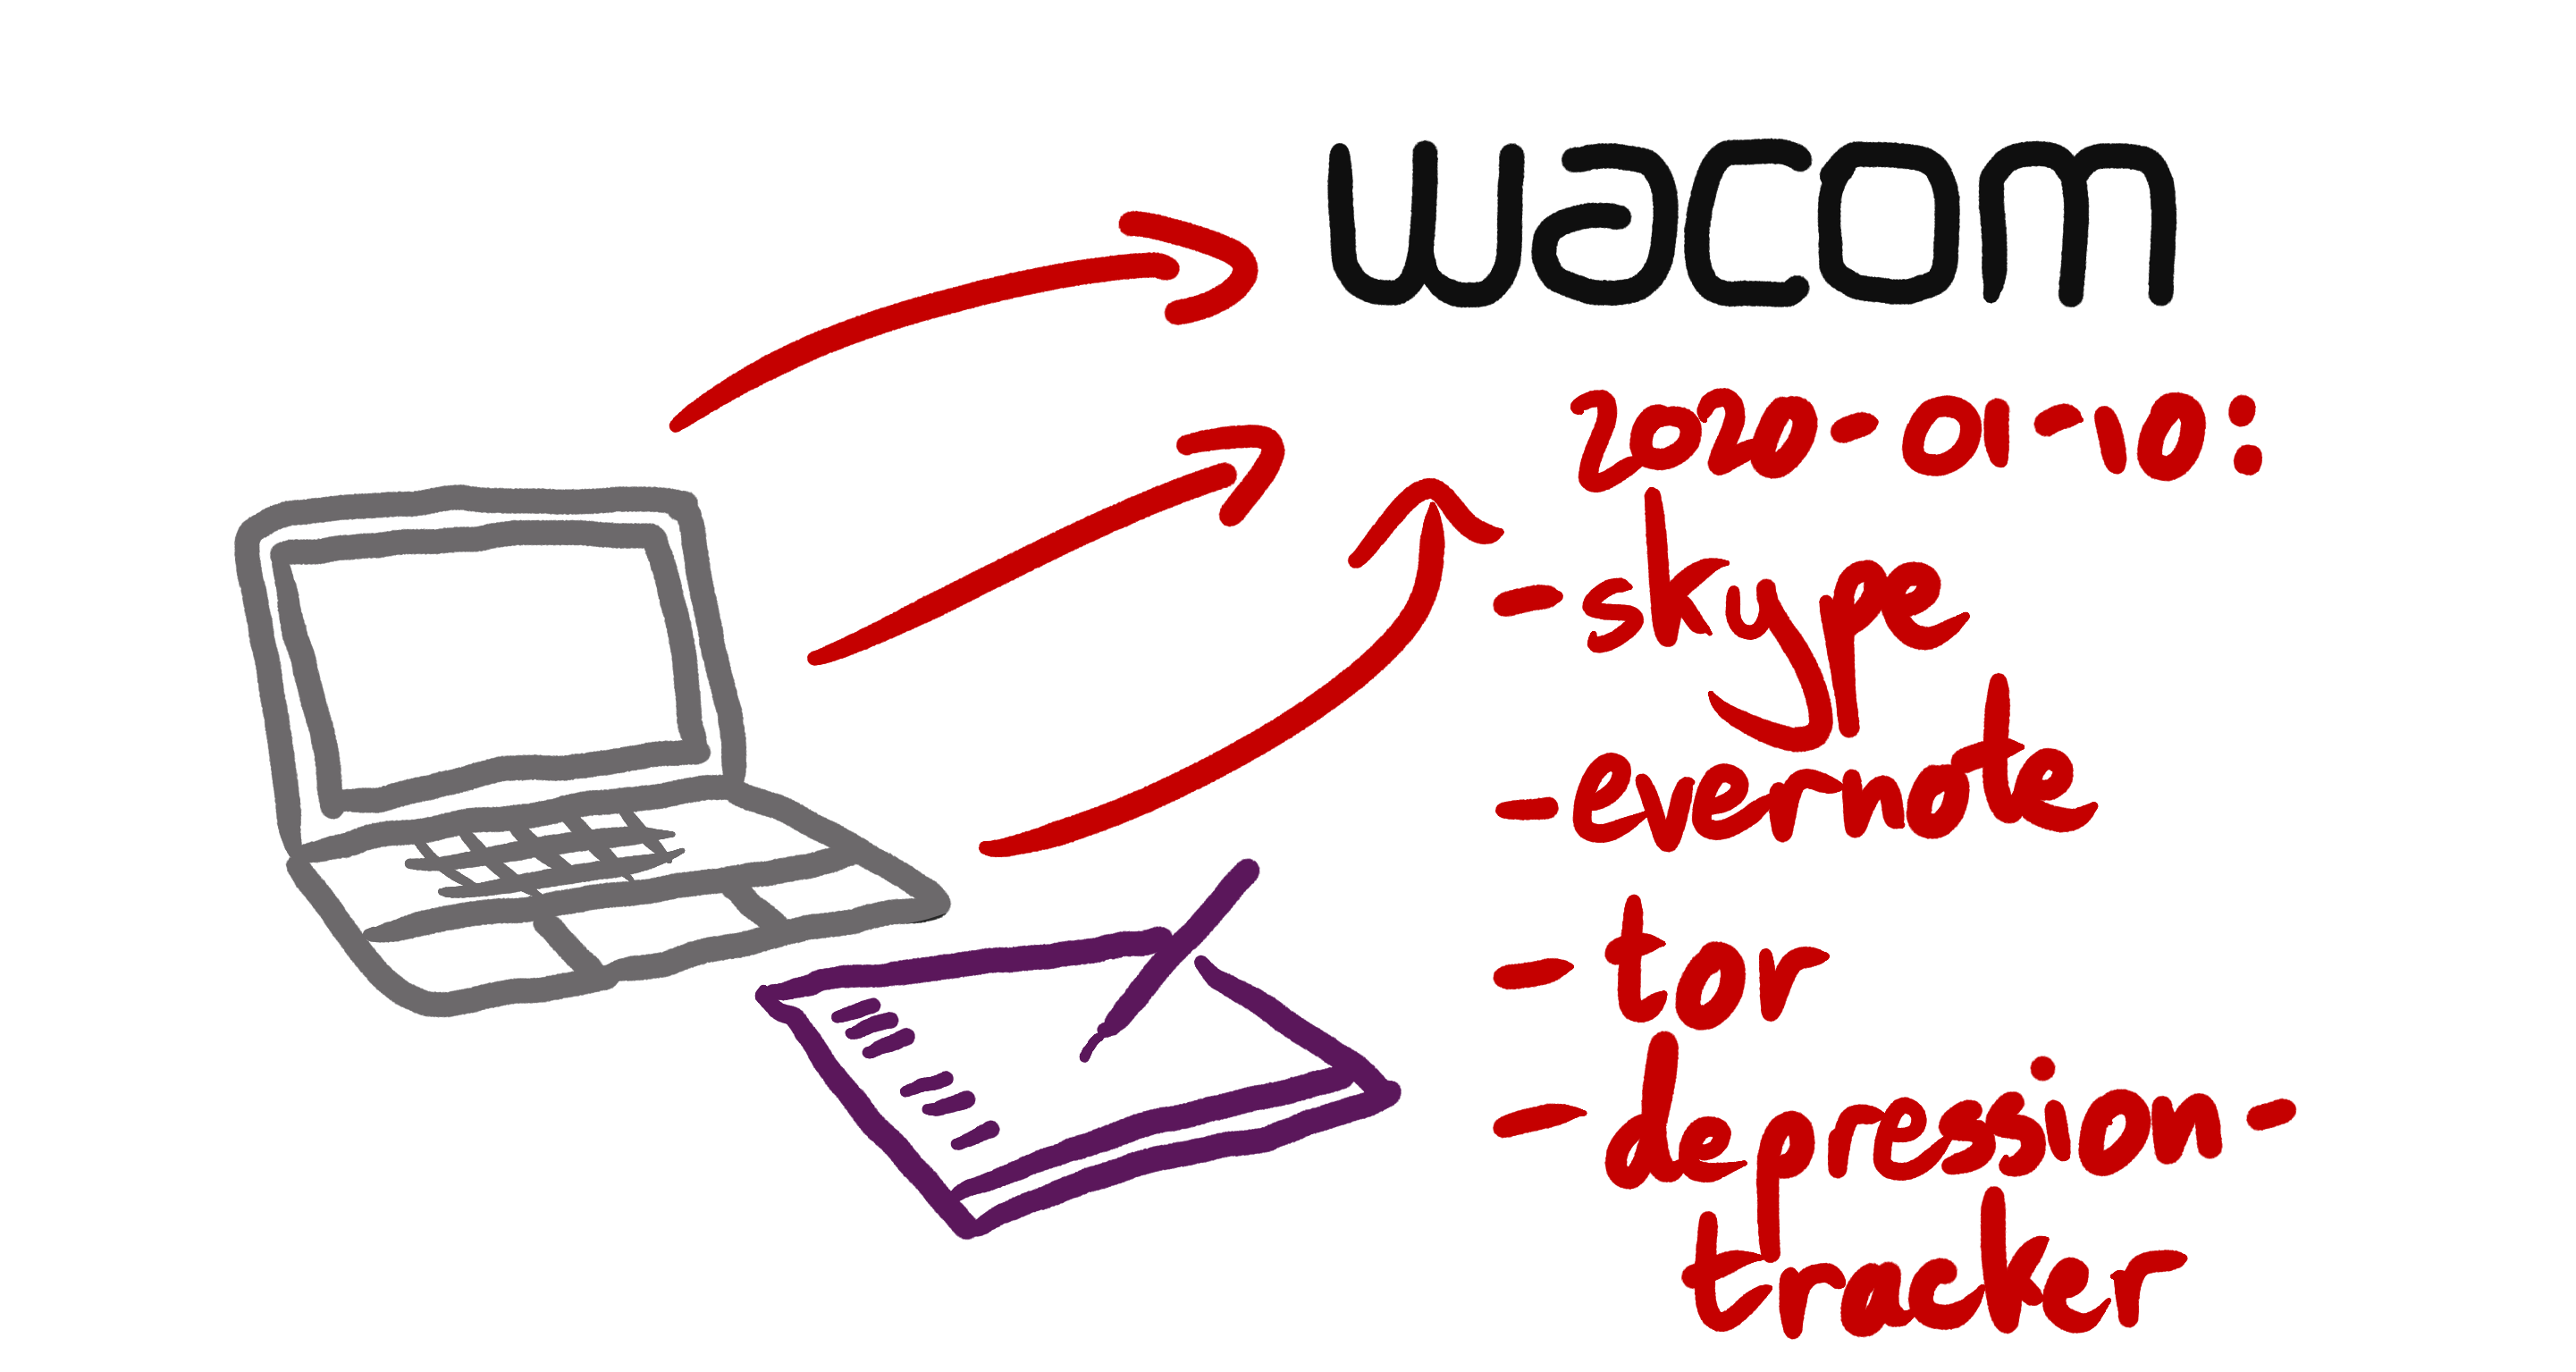 wacom
2020-01-10:
-skype
-evernote
-tor
-depression-
tracker